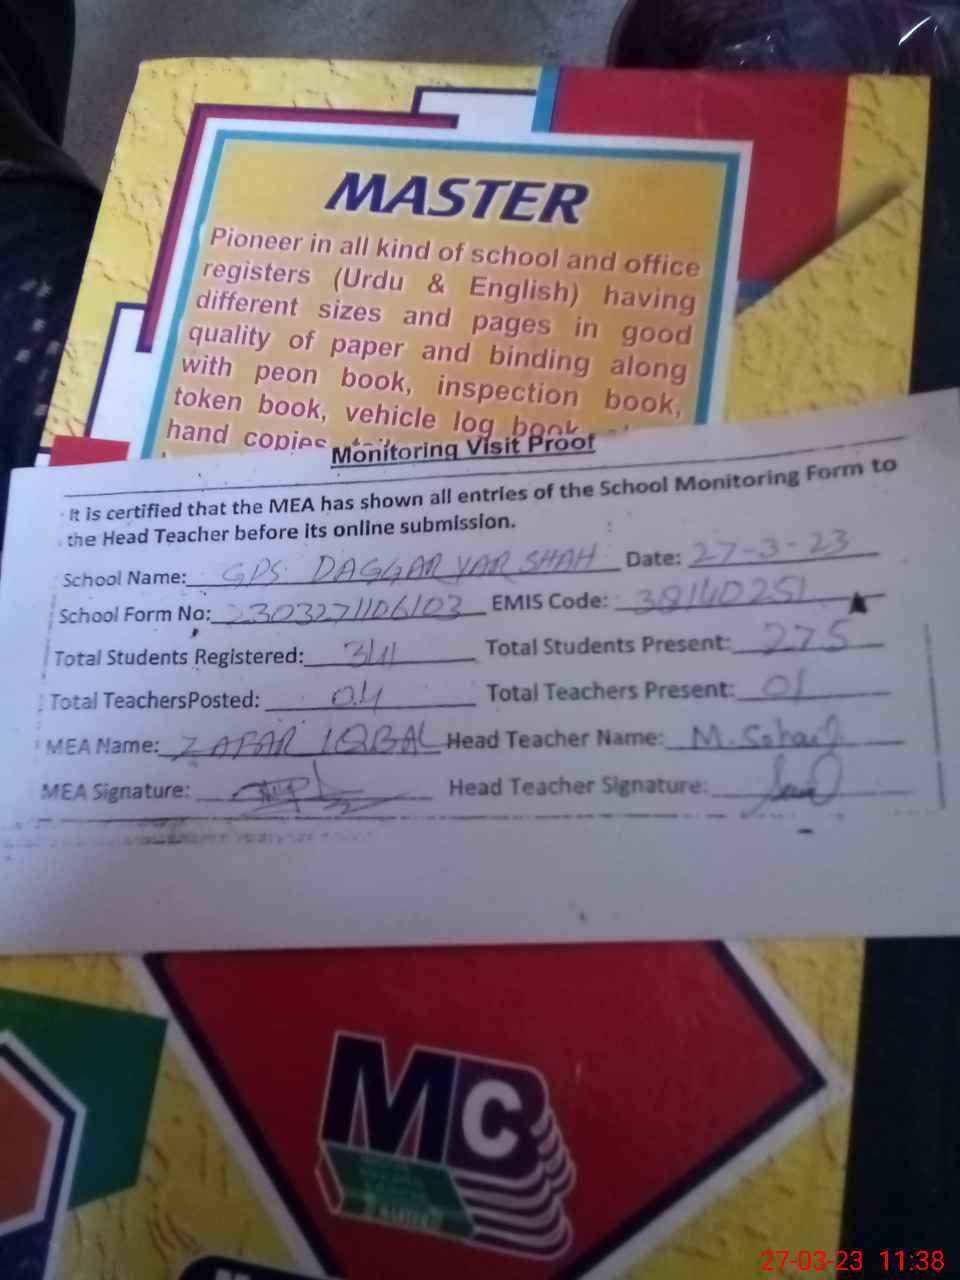 MASTER
Pioneer in all kind of school and office
registers (Urdu & English) having
different sizes and pages in good
quality of paper and binding along
with peon book, inspection book,
token book, vehicle log book
hand copies
Monitoring Visit Proof
It is certified that the MEA has shown all entries of the School Monitoring Form to
the Head Teacher before its online submission.
School Name: GPS DAGGAR YAR SHAH Date: 27-3-23
School Form No: 2303271106103 EMIS Code: 38140251
Total Students Registered: 341 Total Students Present: 275
Total TeachersPosted: 04 Total Teachers Present: 01
MEA Name: ZAFAR IQBAL Head Teacher Name: M. Sohail
MEA Signature: Head Teacher Signature:
MC
MASTER
27-03-23 11:38